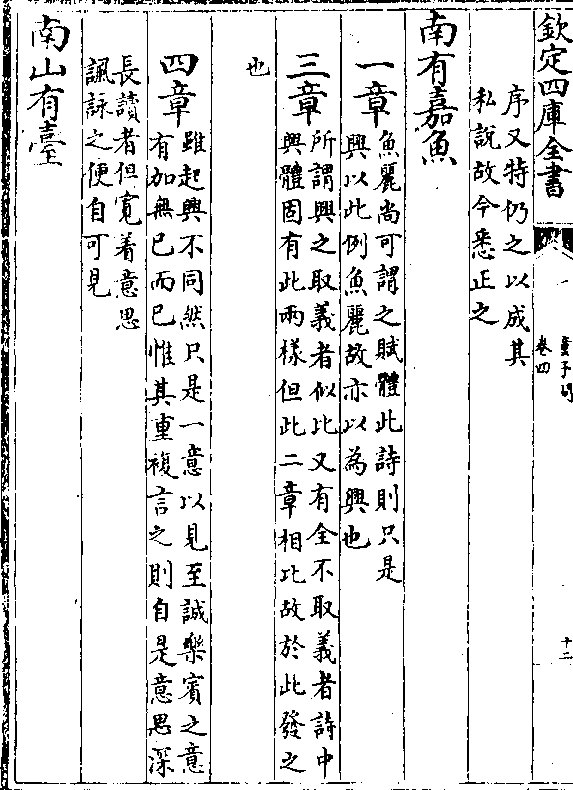 欽定四庫全書
童子問
卷四
十二
序又特仍之以成其
私説故今悉正之
南有嘉魚
一章
魚麗尚可謂之賦體此詩則只是
興以此例魚麗故亦以為興也
三章
所謂興之取義者似比又有全不取義者詩中
興體固有此兩樣但此二章相比故於此發之
也
四章
雖起興不同然只是一意以見至誠樂賓之意
有加無已而已惟其重複言之則自是意思深
長讀者但寛着意思
諷詠之便自可見
南山有臺